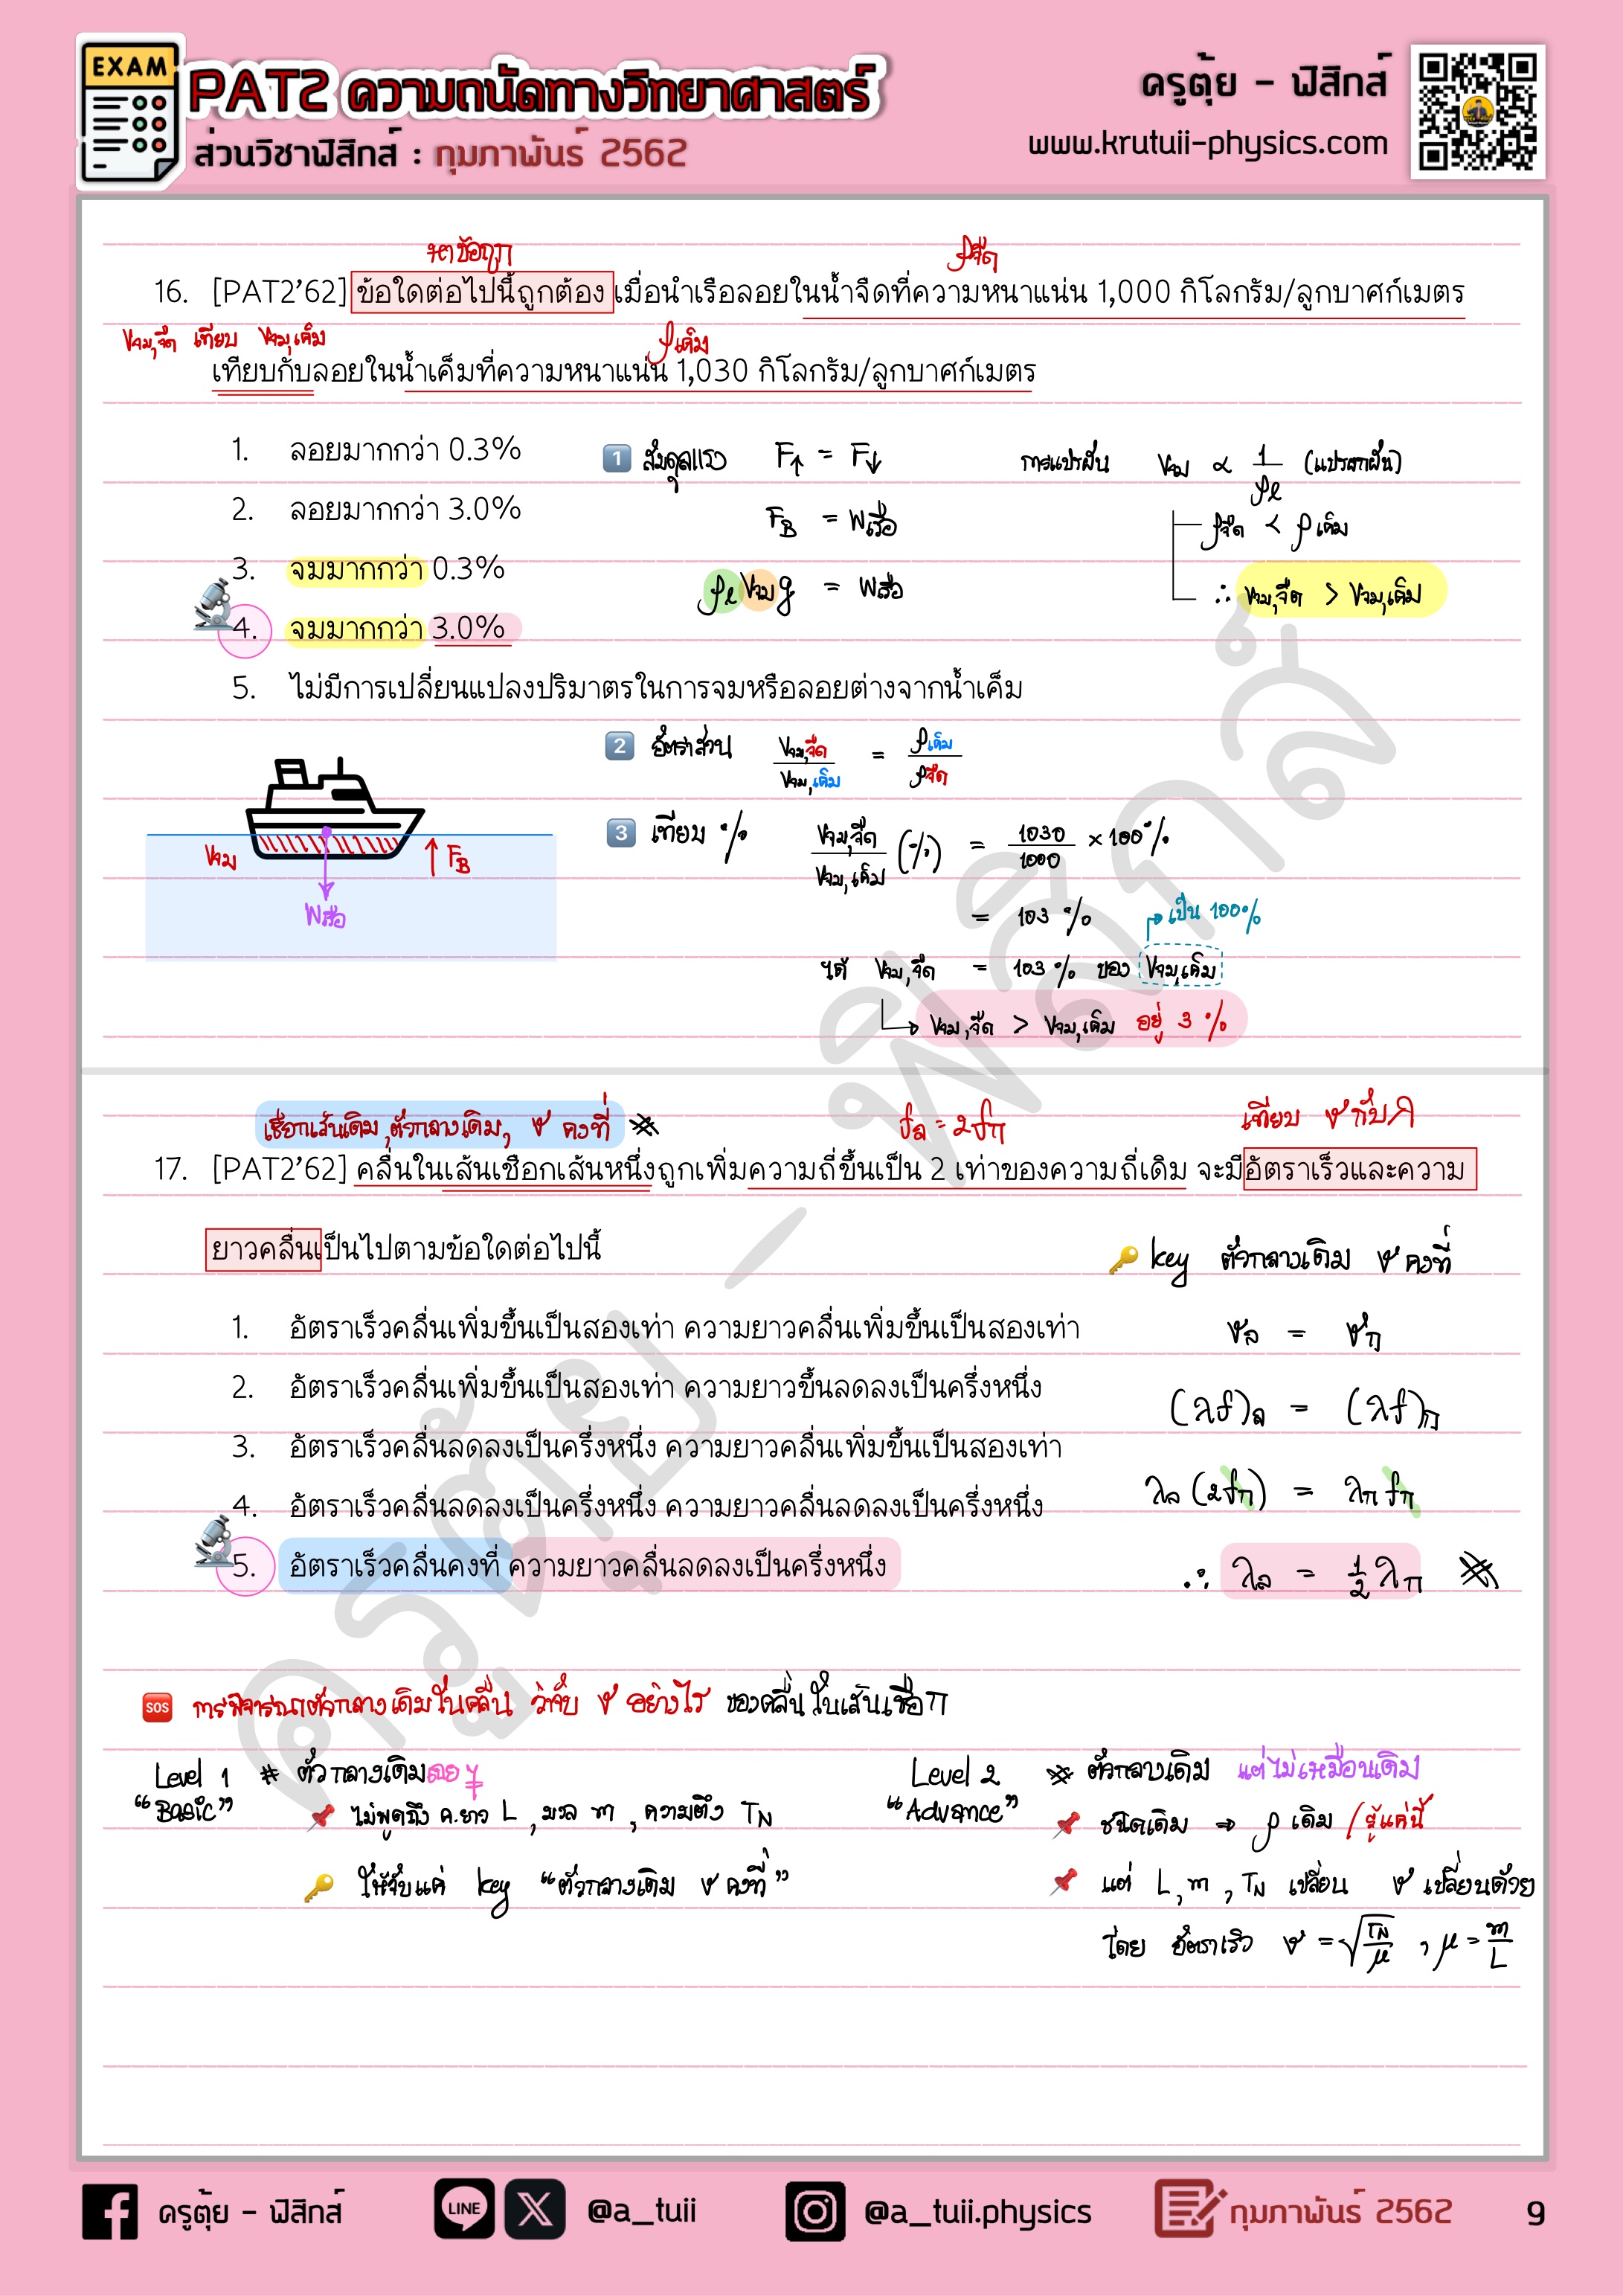 EXAM
PAT2 ความถนัดทางวิทยาศาสตร์
ส่วนวิชาฟิสิกส์ : กุมภาพันธ์ 2562
ครูตุ้ย - ฟิสิกส์
www.krutuii-physics.com
หาข้อถูก
ρจืด
16. [PAT2'62] ข้อใดต่อไปนี้ถูกต้อง เมื่อนำเรือลอยในน้ำจืดที่ความหนาแน่น 1,000 กิโลกรัม/ลูกบาศก์เมตร
Vจม,จืด เทียบ Vจม,เค็ม
ρเค็ม
เทียบกับลอยในน้ำเค็มที่ความหนาแน่น 1,030 กิโลกรัม/ลูกบาศก์เมตร
1. ลอยมากกว่า 0.3%
2. ลอยมากกว่า 3.0%
3. จมมากกว่า 0.3%
4. จมมากกว่า 3.0%
5. ไม่มีการเปลี่ยนแปลงปริมาตรในการจมหรือลอยต่างจากน้ำเค็ม
1 สมดุลแรง F↑ = F↓
FB = Wเรือ
ρl Vจม g = Wเรือ
การแปรผัน Vจม ∝ 1/ρl (แปรผกผัน)
ρจืด < ρเค็ม
∴ Vจม,จืด > Vจม,เค็ม
2 อัตราส่วน Vจม,จืด/Vจม,เค็ม = ρเค็ม/ρจืด
3 เทียบ % Vจม,จืด/Vจม,เค็ม (%) = 1030/1000 × 100%
= 103 %
เป็น 100%
ได้ Vจม,จืด = 103 % ของ Vจม,เค็ม
Vจม,จืด > Vจม,เค็ม อยู่ 3 %
Vจม
FB
Wเรือ
เชือกเส้นเดิม,ตัวกลางเดิม, v คงที่
fล = 2fก
เทียบ v กับ λ
17. [PAT2'62] คลื่นในเส้นเชือกเส้นหนึ่งถูกเพิ่มความถี่ขึ้นเป็น 2 เท่าของความถี่เดิม จะมีอัตราเร็วและความ
ยาวคลื่นเป็นไปตามข้อใดต่อไปนี้
1. อัตราเร็วคลื่นเพิ่มขึ้นเป็นสองเท่า ความยาวคลื่นเพิ่มขึ้นเป็นสองเท่า
2. อัตราเร็วคลื่นเพิ่มขึ้นเป็นสองเท่า ความยาวขึ้นลดลงเป็นครึ่งหนึ่ง
3. อัตราเร็วคลื่นลดลงเป็นครึ่งหนึ่ง ความยาวคลื่นเพิ่มขึ้นเป็นสองเท่า
4. อัตราเร็วคลื่นลดลงเป็นครึ่งหนึ่ง ความยาวคลื่นลดลงเป็นครึ่งหนึ่ง
5. อัตราเร็วคลื่นคงที่ ความยาวคลื่นลดลงเป็นครึ่งหนึ่ง
key ตัวกลางเดิม v คงที่
vล = vก
(λf)ล = (λf)ก
λล (2fก) = λก fก
∴ λล = 1/2 λก
SOS การพิจารณาตัวกลางเดิมในคลื่น ว่าจับ v อย่างไร ของคลื่นในเส้นเชือก
Level 1 # ตัวกลางเดิมเฉย ๆ
"Basic" ไม่พูดถึง ค.ยาว L , มวล m , ความตึง TN
ให้จับแค่ key "ตัวกลางเดิม v คงที่"
Level 2 ตัวกลางเดิม แต่ไม่เหมือนเดิม
"Advance" ชนิดเดิม ⇒ ρ เดิม (รู้แค่นี้
แต่ L, m, TN เปลี่ยน v เปลี่ยนด้วย
โดย อัตราเร็ว v = √(TN/μ) , μ = m/L
ครูตุ้ย - ฟิสิกส์
ครูตุ้ย - ฟิสิกส์
LINE
@a_tuii
@a_tuii.physics
กุมภาพันธ์ 2562
9